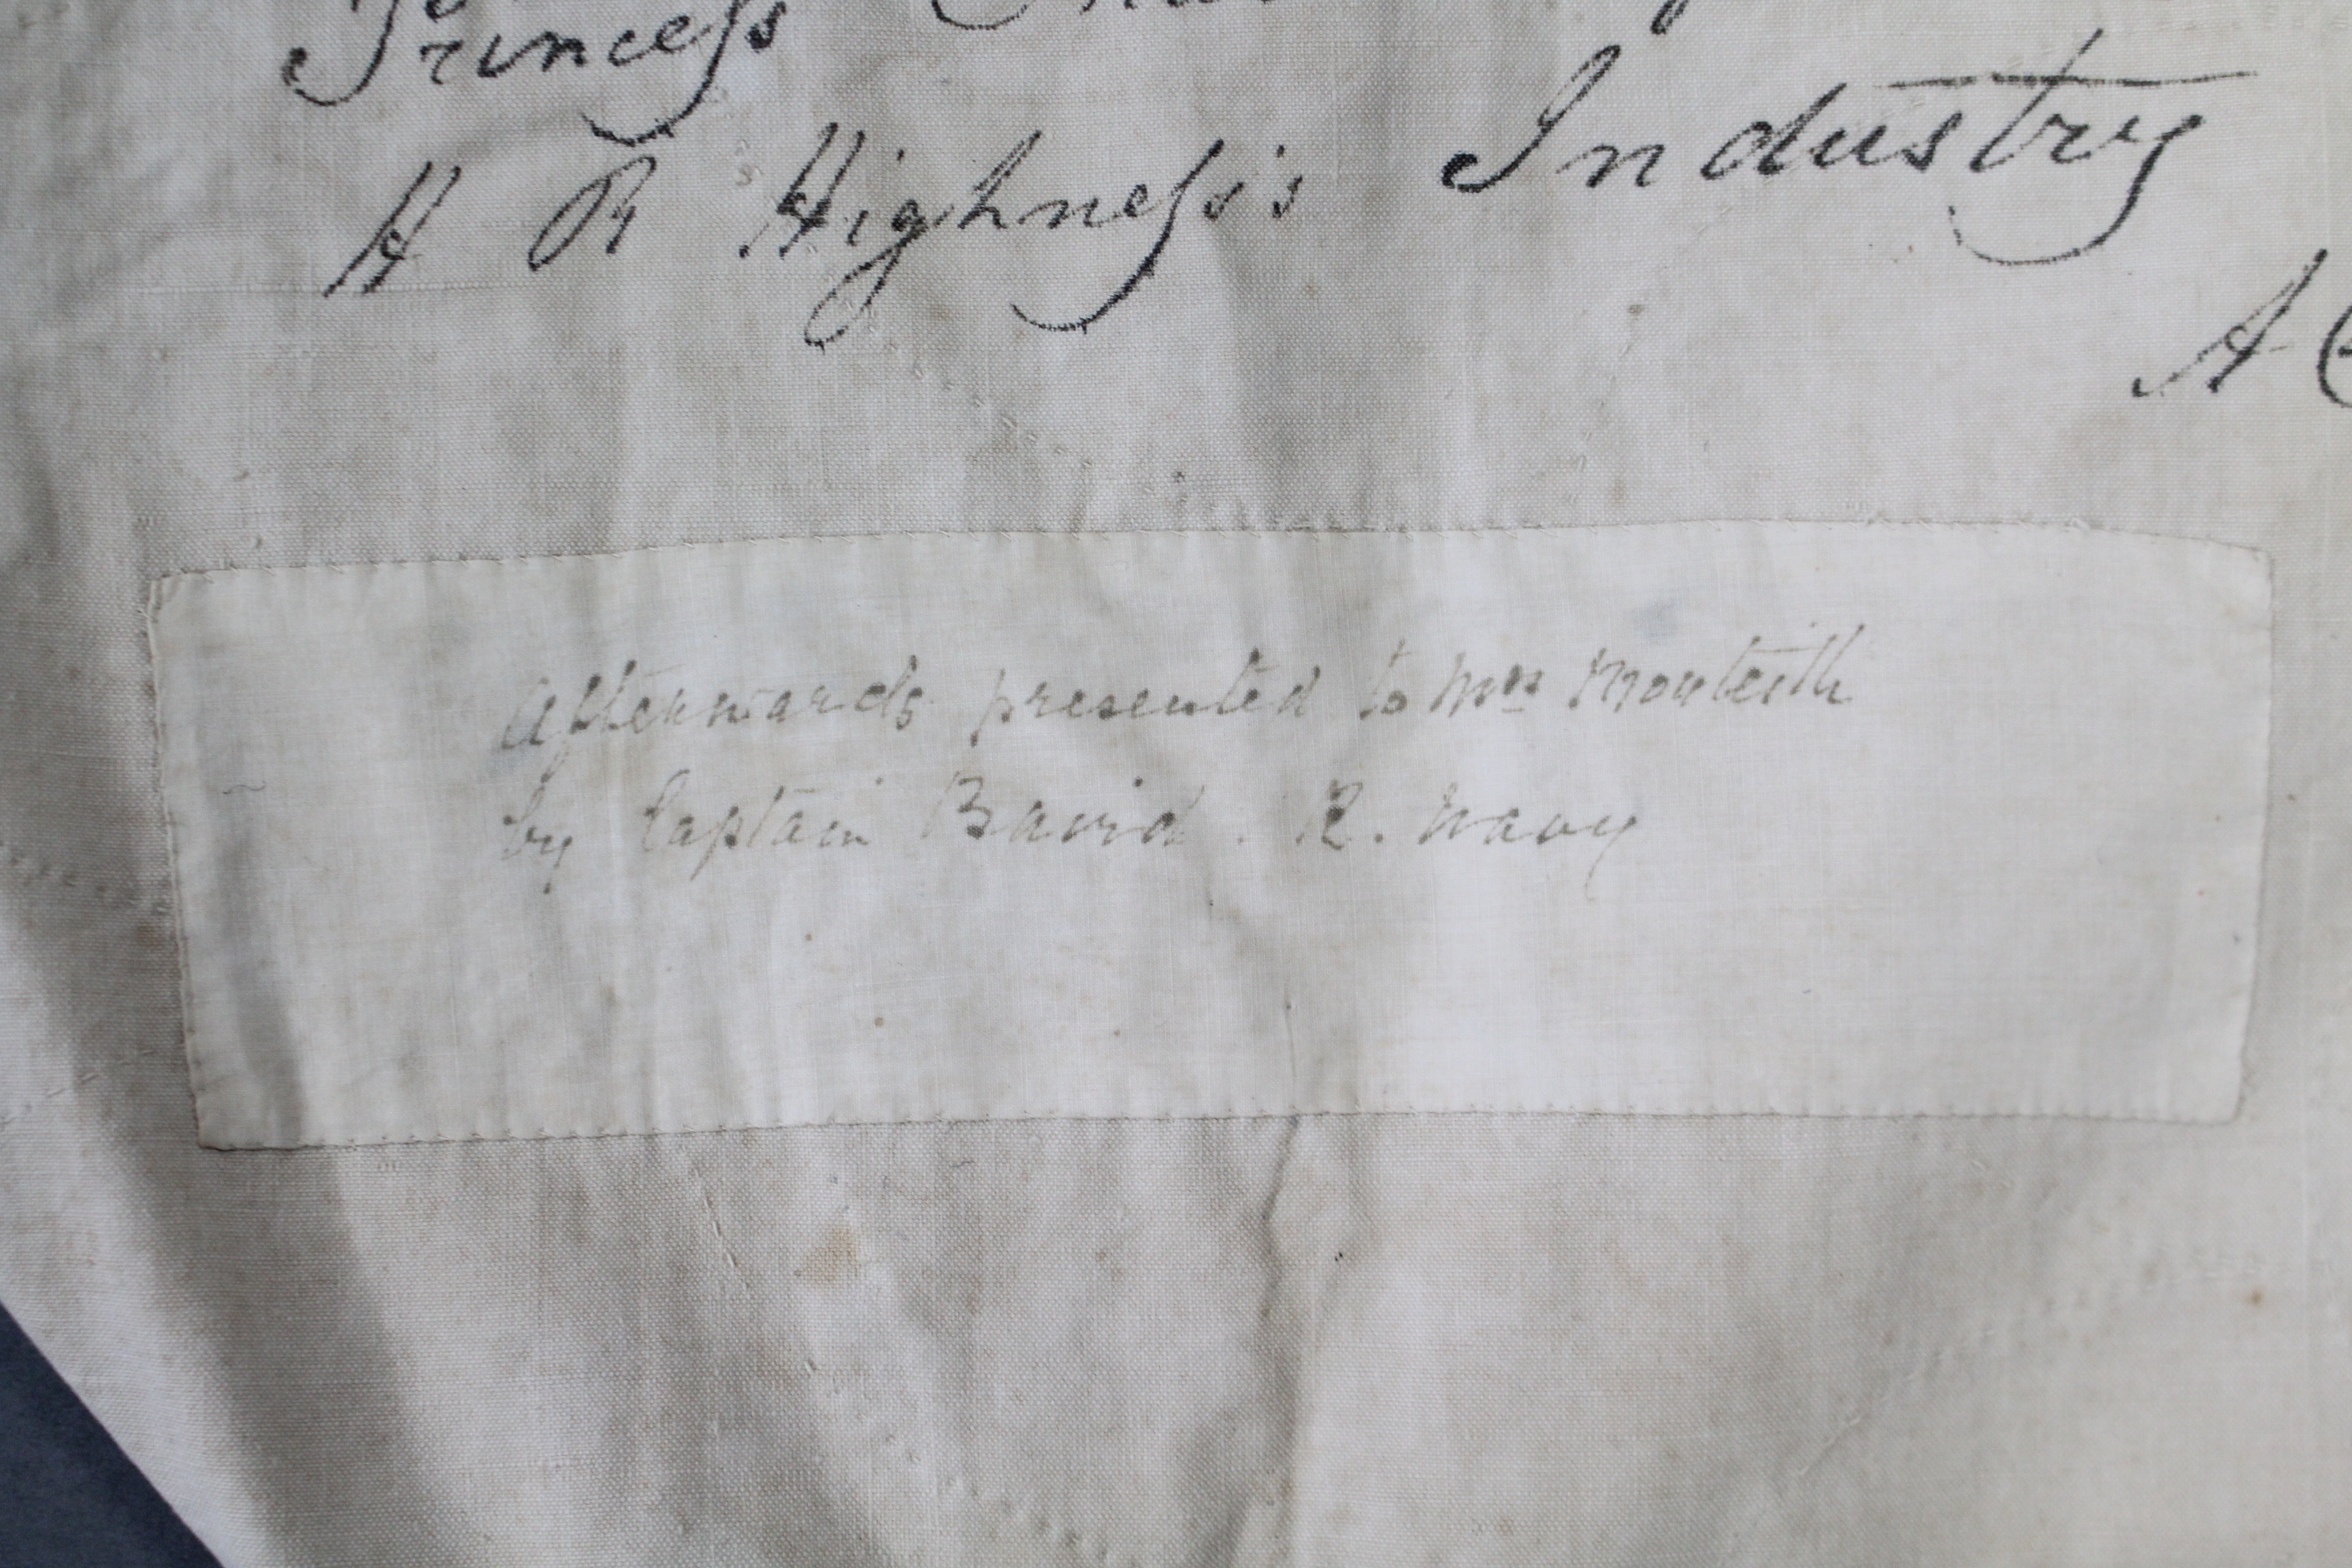 Princess
H R Highness's Industry
A
Afterwards presented to Mrs Monteith
by Captain Baird. R. Navy